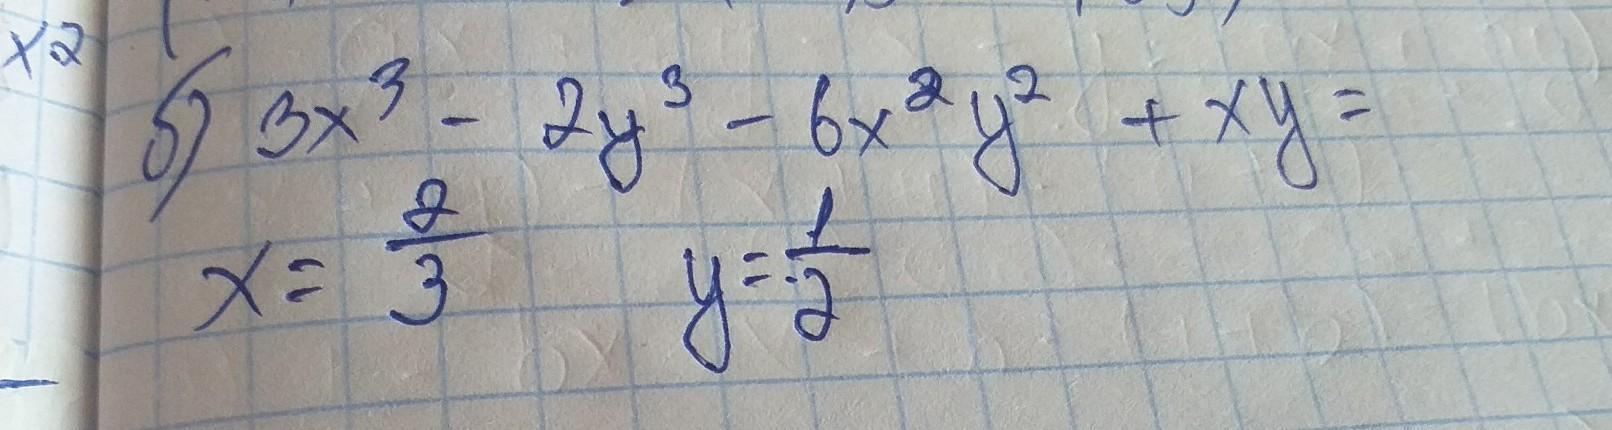 x2
б) 3x³ - 2y³ - 6x²y² + xy =
x = 2/3 y = 1/2